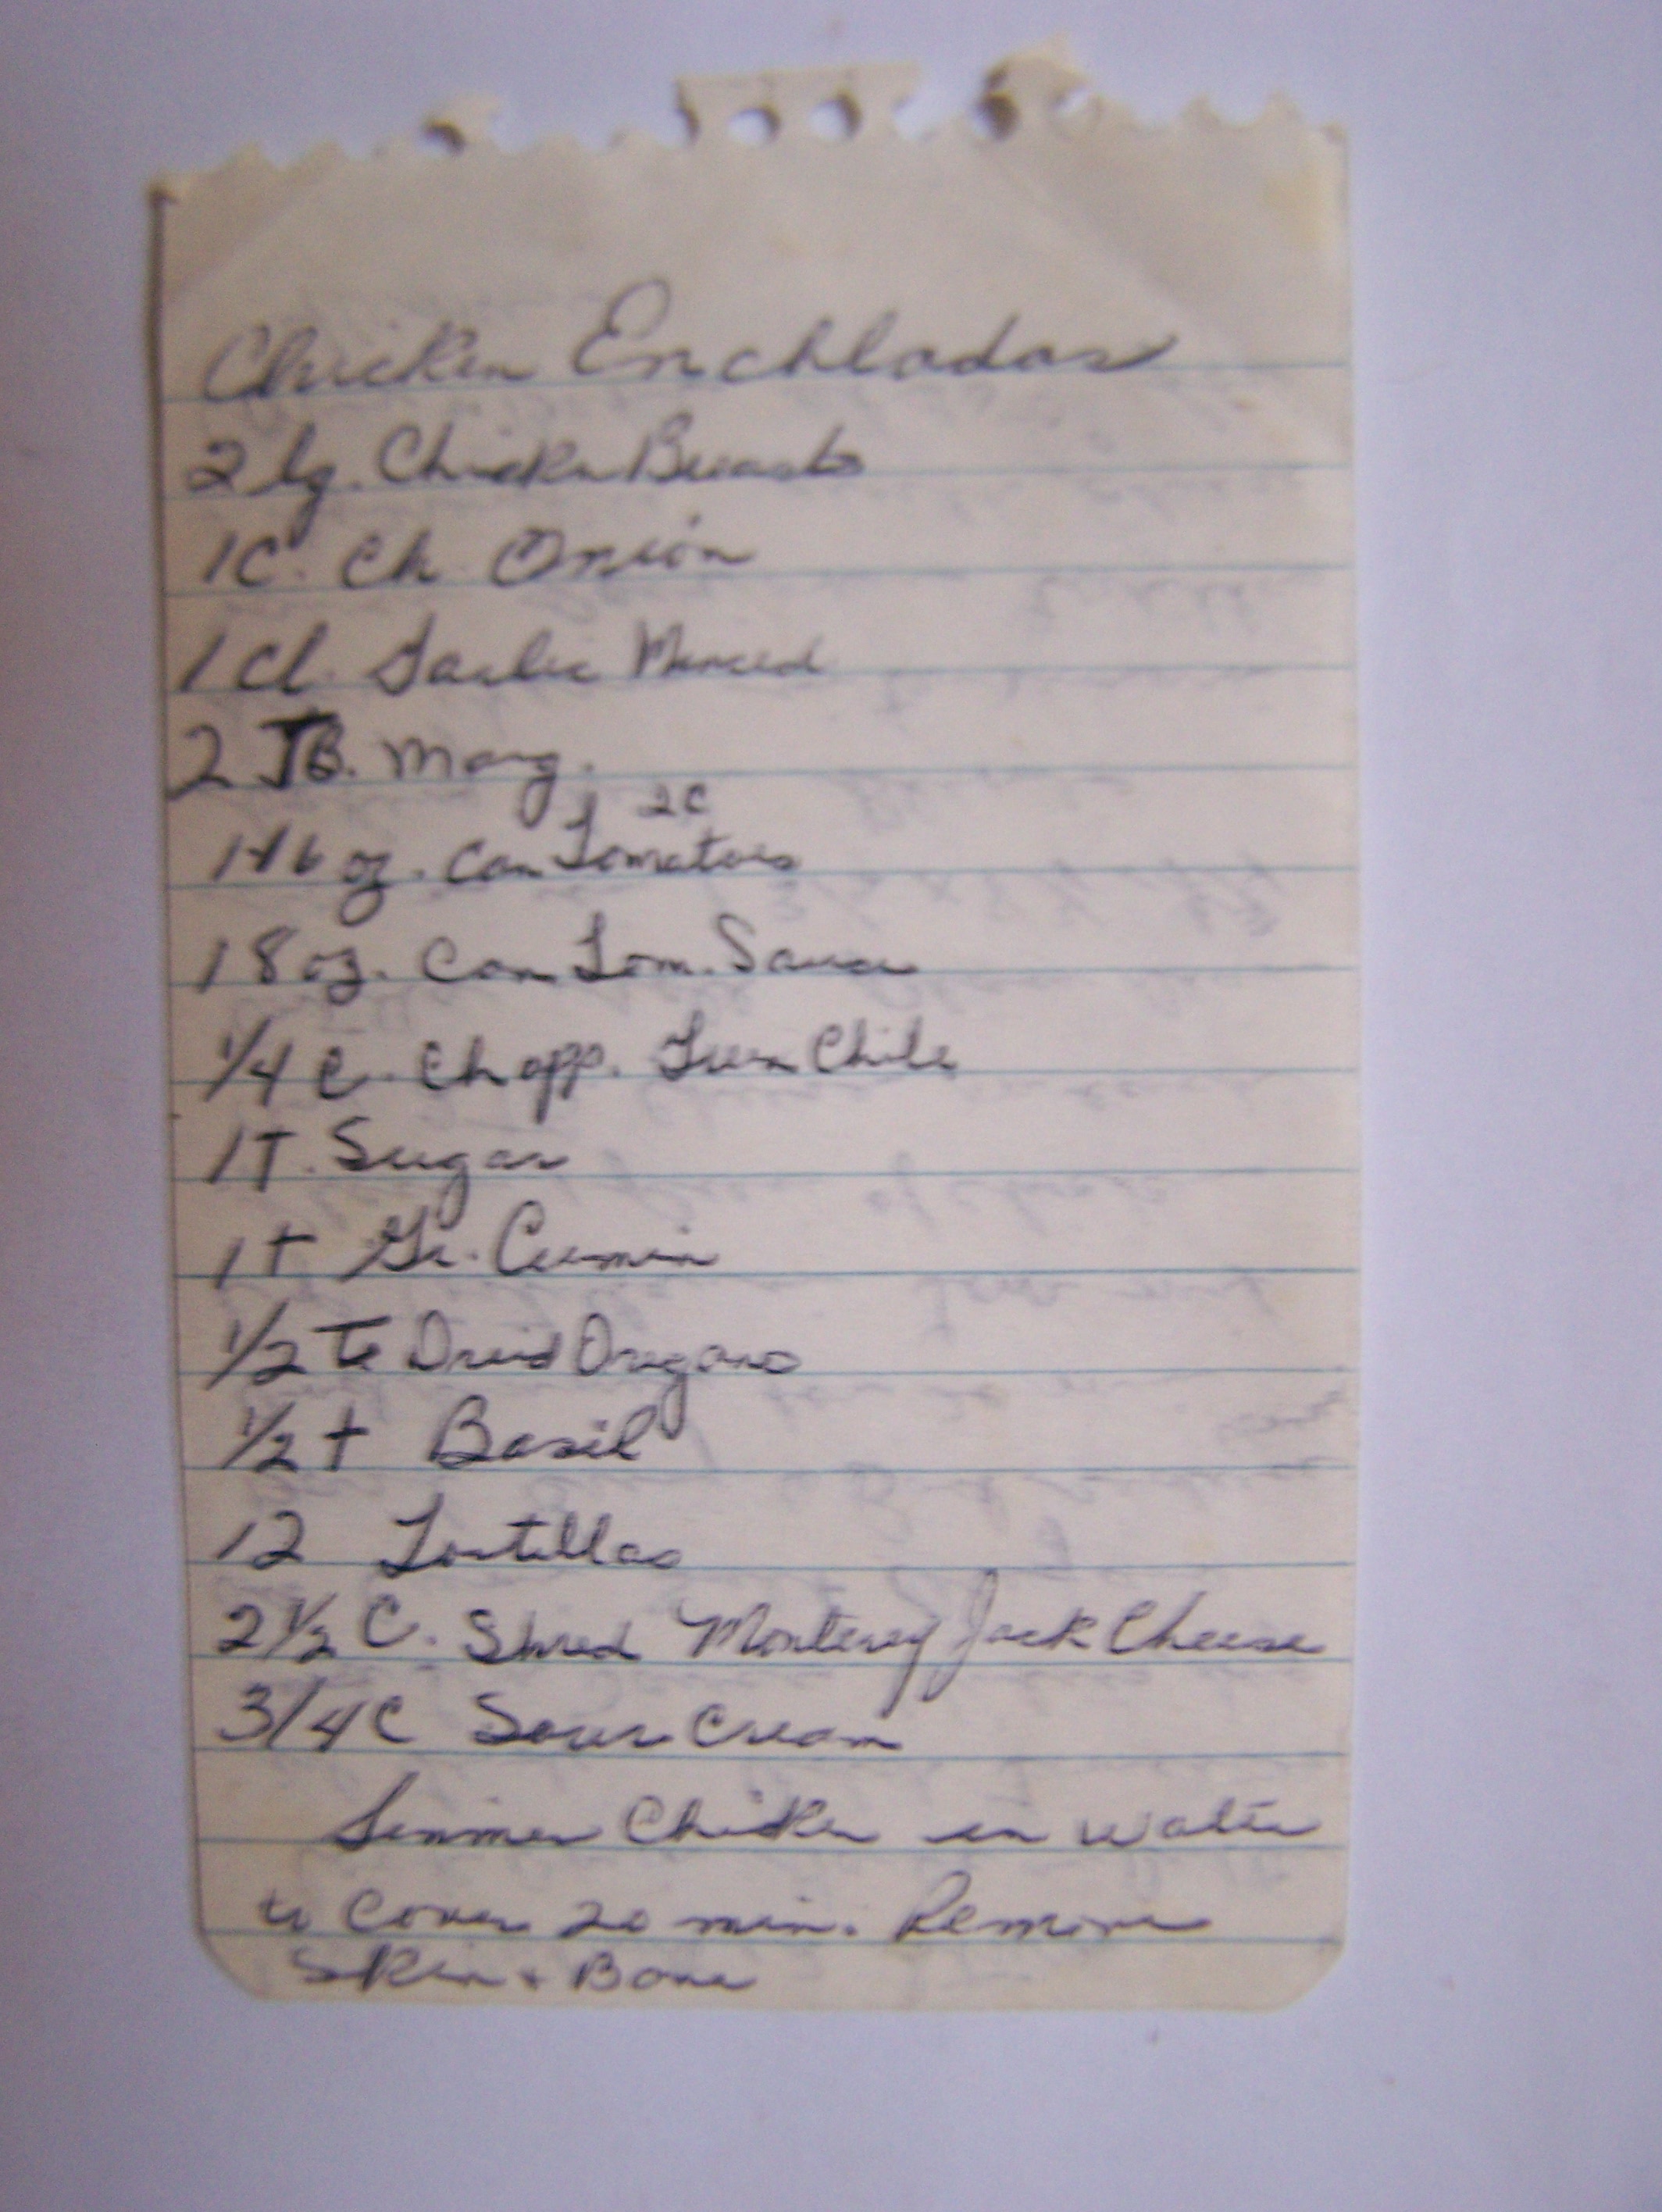 Chicken Enchladas
2 lg. Chicken Breasts
1 C. Ch. Onion
1 Cl. Garlic Minced
2 TB. Marg.
2C
1 16 oz. Can Tomatoes
1 8 oz. Can Tom. Sauce
1/4 C. Chopp. Green Chile
1 T. Sugar
1 t Gr. Cumin
1/2 te Dried Oregano
1/2 t Basil
12 Tortillas
2 1/2 C. Shred Monterey Jack Cheese
3/4 C Sour Cream
Simmer Chicken in water
to Cover 20 min. Remove
Skin + Bone